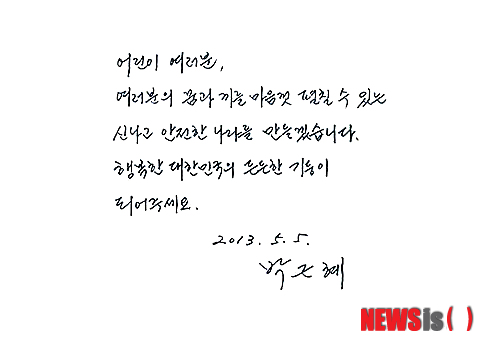 어린이 여러분,
여러분의 꿈과 끼를 마음껏 펼칠 수 있는
신나고 안전한 나라를 만들겠습니다.
행복한 대한민국의 튼튼한 기둥이
되어주세요.
2013. 5. 5.
박근혜
NEWSis( )